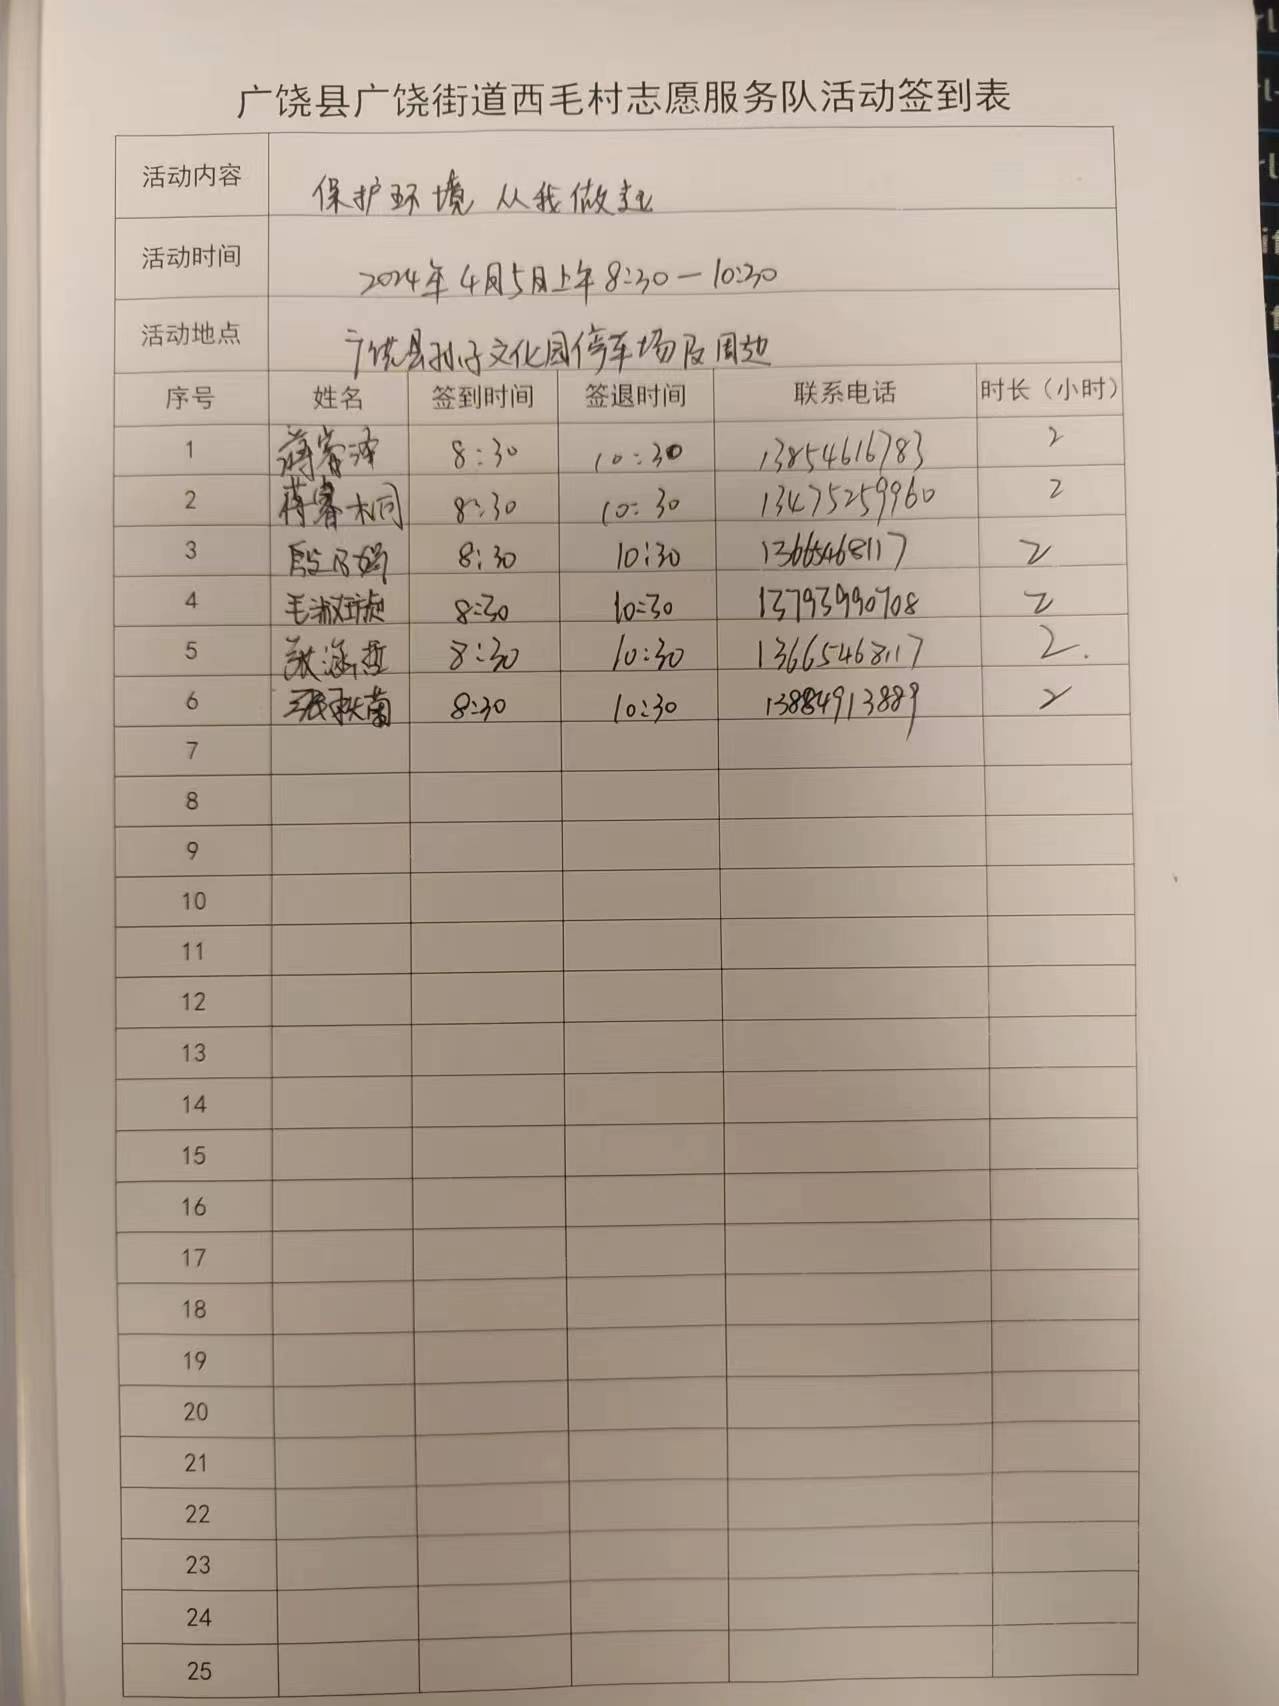 广饶县广饶街道西毛村志愿服务队活动签到表
活动内容 保护环境 从我做起
活动时间 2024年4月5日上午8:30—10:30
活动地点 广饶县孙子文化园停车场及周边
序号 姓名 签到时间 签退时间 联系电话 时长（小时）
1 蒋睿泽 8:30 10:30 13854616783 2
2 蒋睿桐 8:30 10:30 13475259960 2
3 8:30 10:30 13665468117 2
4 毛淑璇 8:30 10:30 13793990708 2
5 张涵哲 8:30 10:30 13665468117 2.
6 8:30 10:30 13884913889 2
7
8
9
10
11
12
13
14
15
16
17
18
19
20
21
22
23
24
25